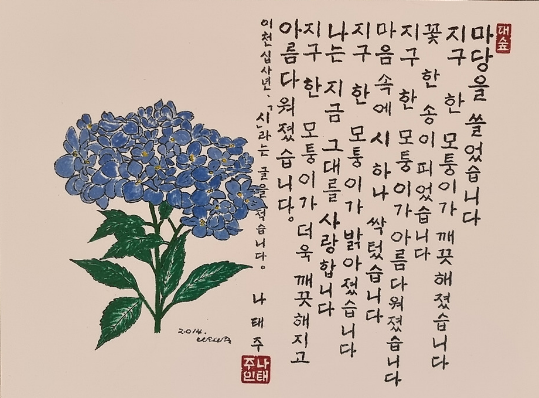 대숲
마당을 쓸었습니다
지구 한 모퉁이가 깨끗해졌습니다
꽃 한 송이 피었습니다
지구 한 모퉁이가 아름다워졌습니다
마음 속에 시 하나 싹텄습니다
지구 한 모퉁이가 밝아졌습니다
나는 지금 그대를 사랑합니다
지구 한 모퉁이가 더욱 깨끗해지고
아름다워졌습니다.
이천십사년, 「시」라는 글을 적습니다. 나태주
2014.
나태
주인